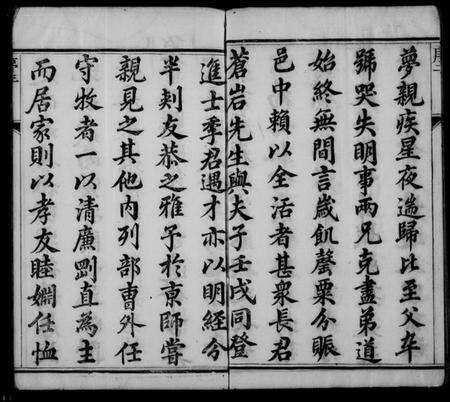 夢親疾星夜遄歸比至父卒
號哭失明事兩兄克盡弟道
始終無間言歲飢罄粟分賑
邑中賴以全活者甚衆長君
蒼岩先生與夫子壬戌同登
進士季君遇才亦以明經今
半刺友恭之雅予於京師嘗
親見之其他內列部曹外任
守牧者一以清廉剛直為主
而居家則以孝友睦婣任恤